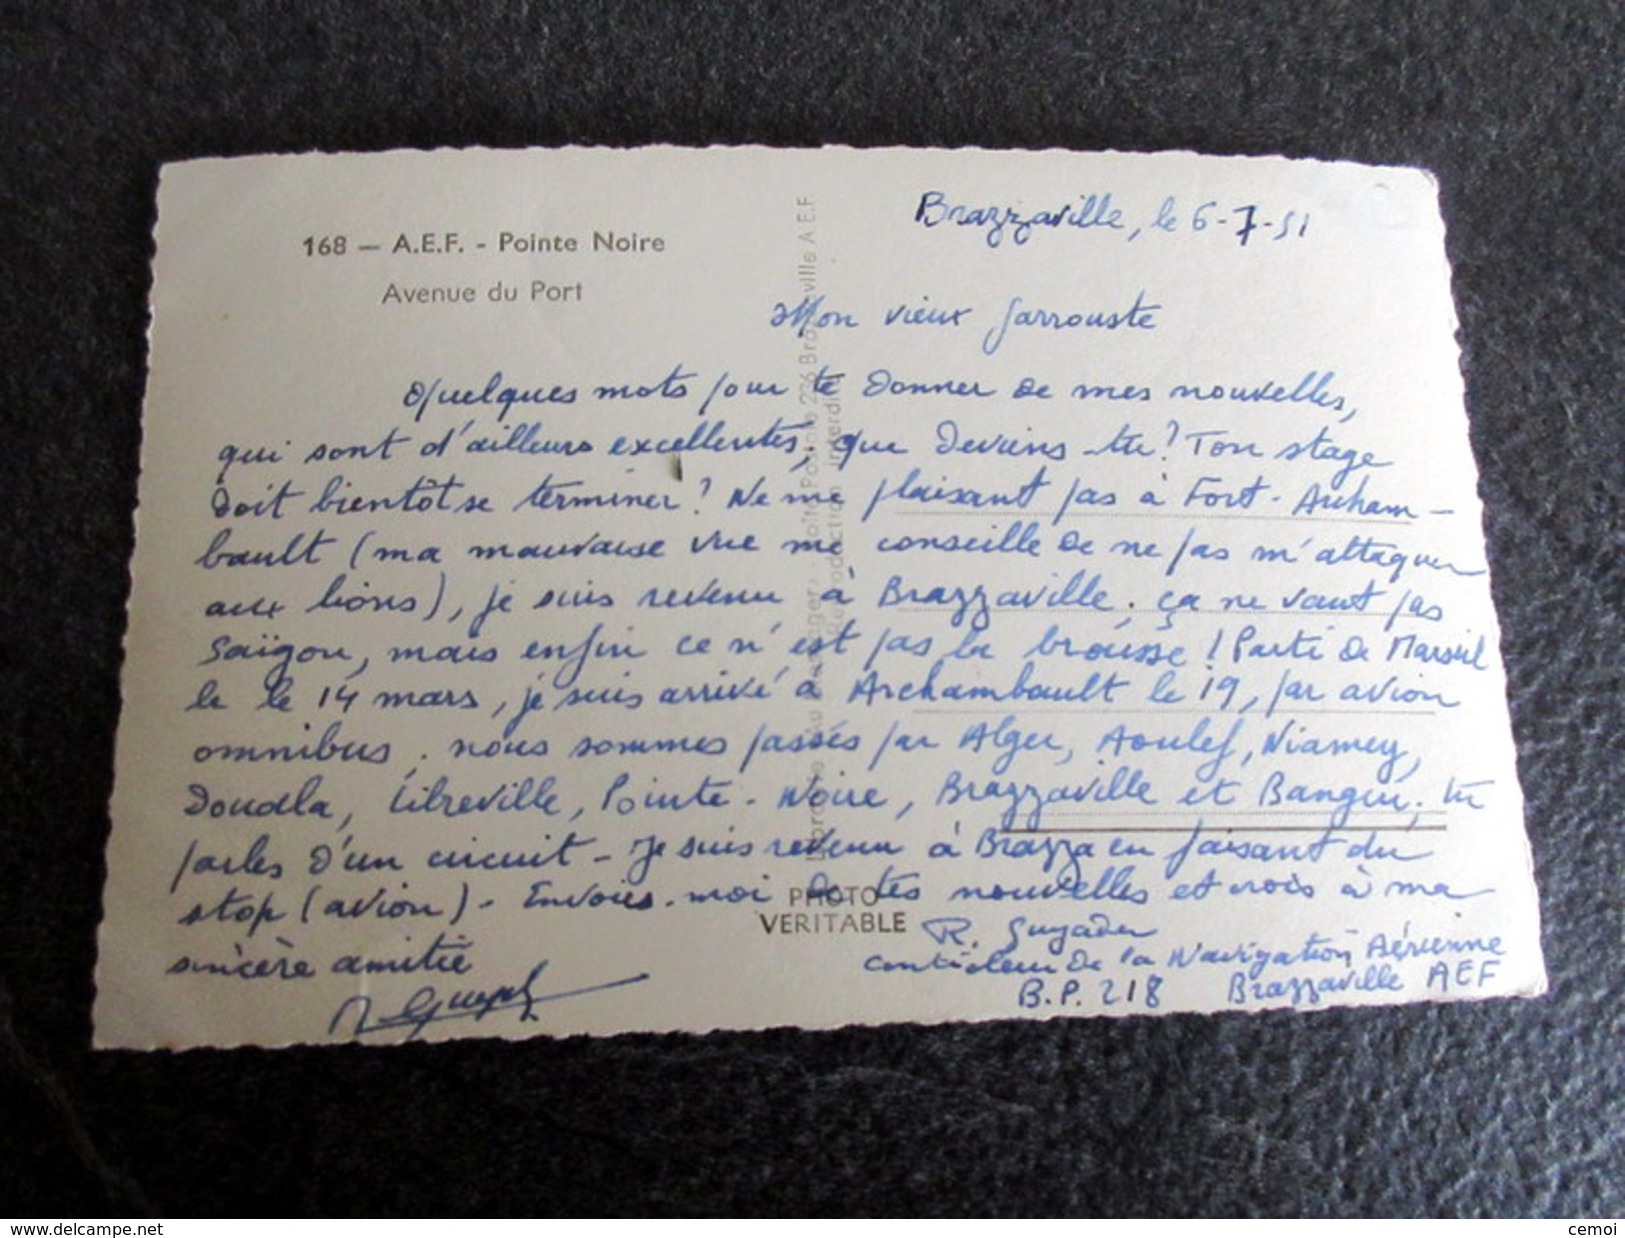 168 — A.E.F. - Pointe Noire
Avenue du Port
Brazzaville, le 6-7-51
Mon vieux Jarrouste
Quelques mots pour te donner de mes nouvelles,
qui sont d'ailleurs excellentes, que deviens-tu? Ton stage
doit bientôt se terminer? Ne me plaisant pas à Fort-Archam-
bault (ma mauvaise vue me conseille de ne pas m'attaquer
aux lions), je suis revenu à Brazzaville. ça ne vaut pas
Saïgon, mais enfin ce n'est pas la brousse! Parti de Marseil
le le 14 mars, je suis arrivé à Archambault le 19, par avion
omnibus. nous sommes passés par Alger, Aoulef, Niamey,
Douala, Libreville, Pointe-Noire, Brazzaville et Bangui. tu
parles d'un circuit - Je suis revenu à Brazza en faisant du
stop (avion) - Envoies-moi de tes nouvelles et crois à ma
sincère amitié
R. Guyader
contrôleur de la Navigation Aérienne
B.P. 218 Brazzaville AEF
PHOTO
VERITABLE
Postale 236 Brazzaville A.E.F.
Reproduction interdite
delcampe.net
cemoi